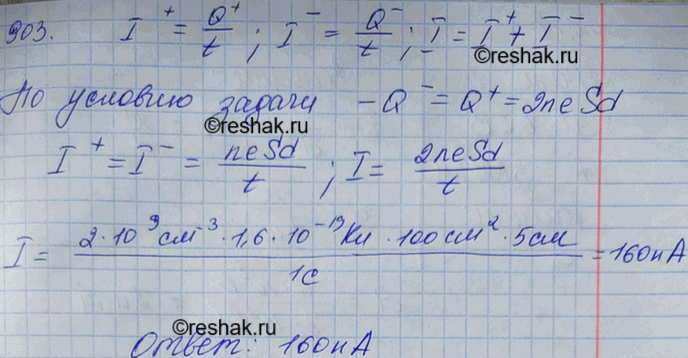 903. I⁺ = Q⁺/t ; I⁻ = Q⁻/t ; I = I⁺ + I⁻
©reshak.ru
По условию задачи -Q⁻ = Q⁺ = 2neSd
©reshak.ru
I⁺ = I⁻ = neSd/t ; I = 2neSd/t
I = 2·10⁹см⁻³·1,6·10⁻¹⁹Кл·100см²·5см/1с = 160нА
©reshak.ru
Ответ: 160нА